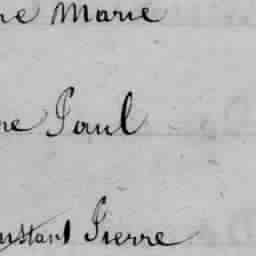 ne Marie
ne Paul
ustant Pierre